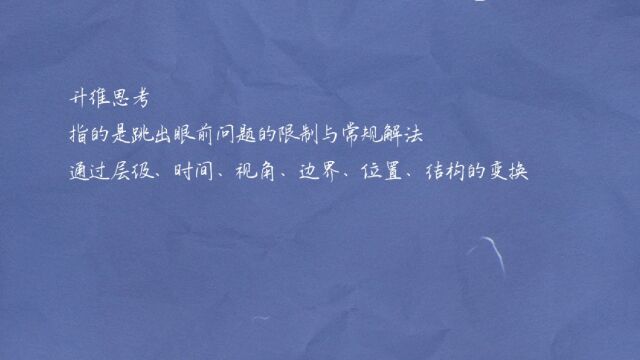 升维思考
指的是跳出眼前问题的限制与常规解法
通过层级、时间、视角、边界、位置、结构的变换